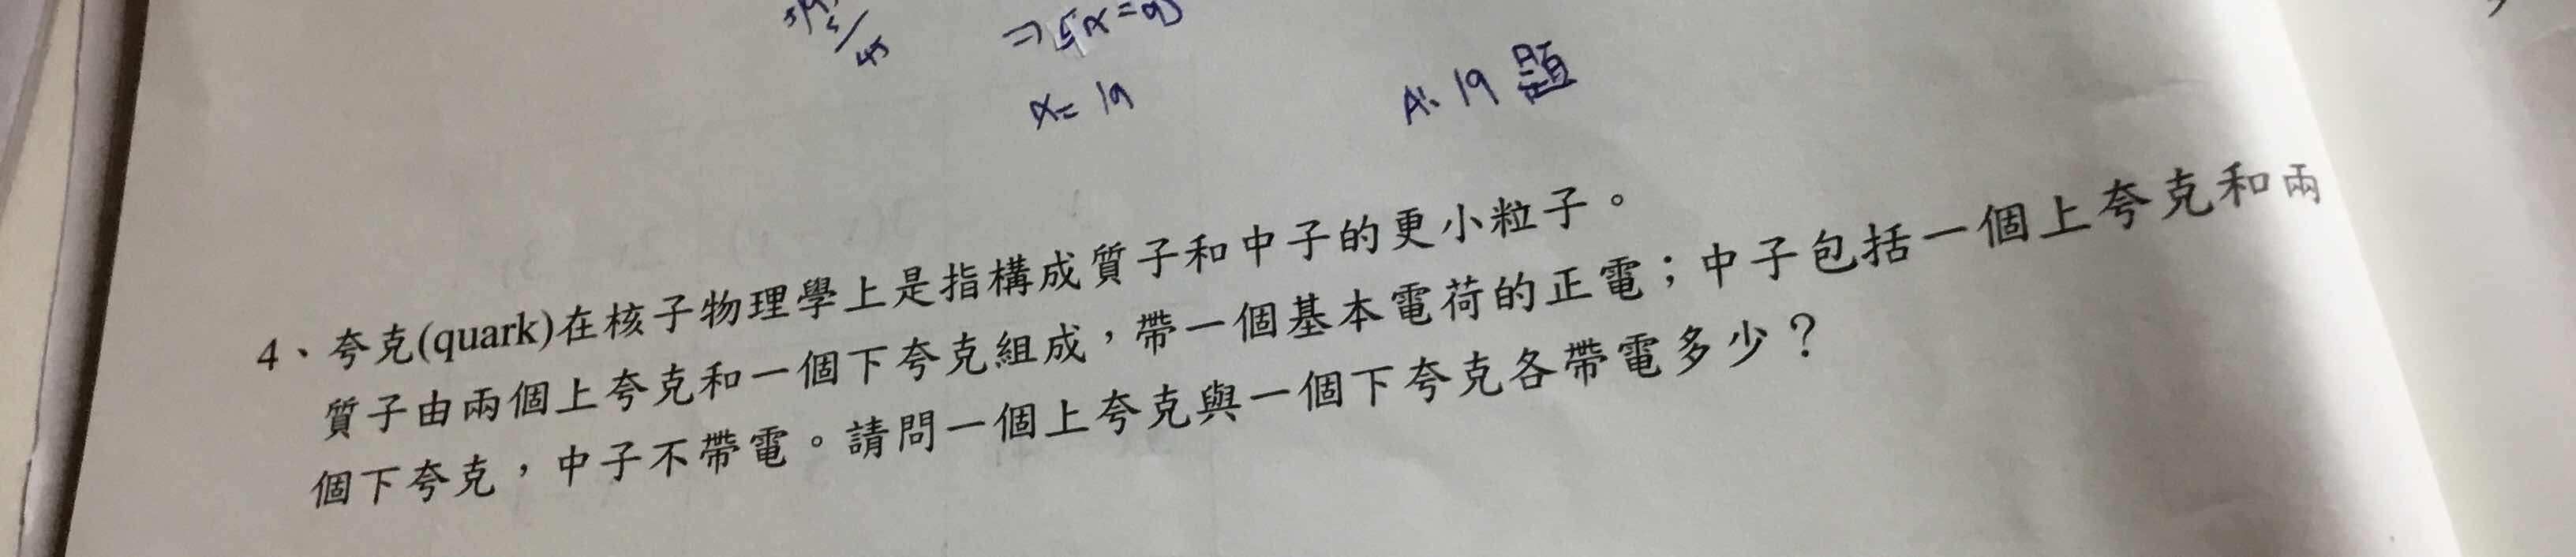 x = 19
A: 19 題
4、夸克(quark)在核子物理學上是指構成質子和中子的更小粒子。
質子由兩個上夸克和一個下夸克組成，帶一個基本電荷的正電；中子包括一個上夸克和兩
個下夸克，中子不帶電。請問一個上夸克與一個下夸克各帶電多少？